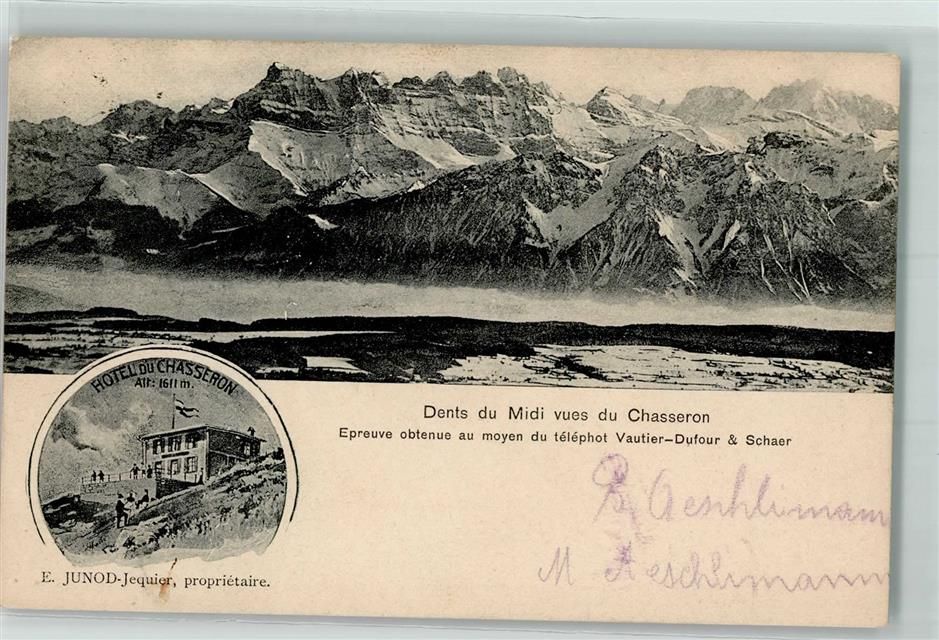 HOTEL DU CHASSERON
Alt: 1611 m.
Dents du Midi vues du Chasseron
Epreuve obtenue au moyen du téléphot Vautier-Dufour & Schaer
B Aeschlimann
M Aeschlimann
E. JUNOD-Jequier, propriétaire.